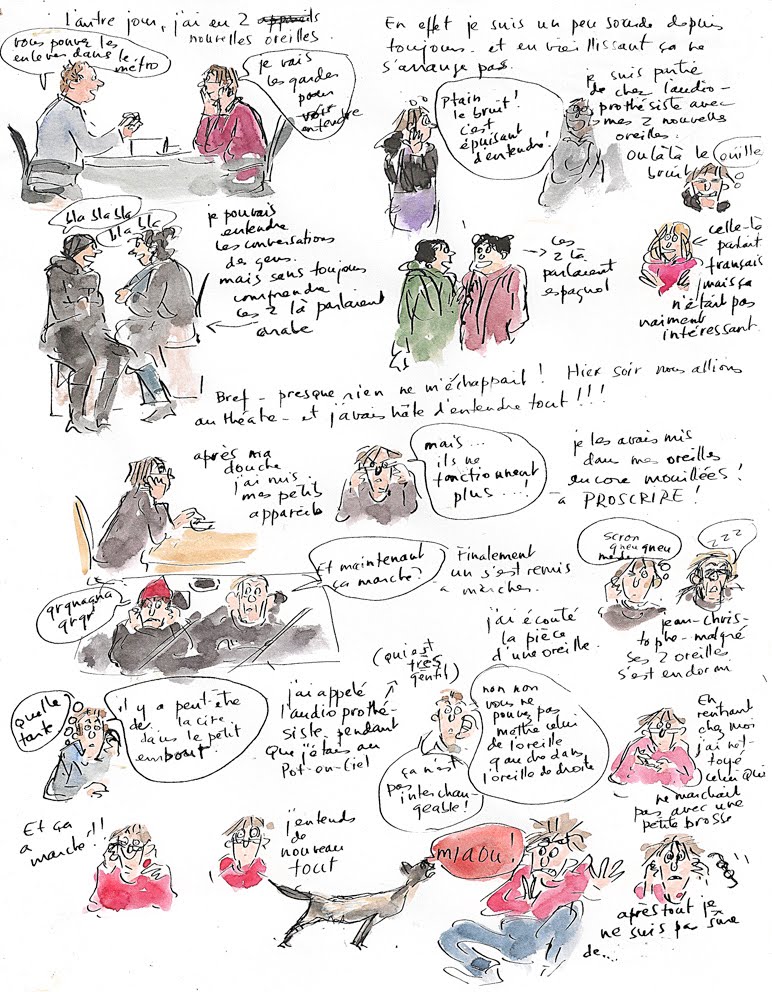 L'autre jour, j'ai eu 2
nouvelles oreilles.
vous pouvez les
enlever dans le
métro
je vais
les garder
pour
vous
entendre
En effet je suis un peu sourde depuis
toujours. et en vieillissant ça ne
s'arrange pas.
Ptain
le bruit!
c'est
épuisant
d'entendre!
je suis partie
de chez l'audio-
prothésiste avec
mes 2 nouvelles
oreilles.
oulàlà le
bruit
ouille
bla bla bla
bla bla
je pouvais
entendre
les conversations
des gens.
mais sans toujours
comprendre
ces 2 là parlaient
arabe
ces
2 là
parlaient
espagnol
celle-là
parlait
français
mais ça
n'était pas
vraiment
intéressant.
Bref - presque rien ne m'échappait! Hier soir nous allions
au théâtre - et j'avais hâte d'entendre tout!!!
après ma
douche
j'ai mis
mes petits
appareils
mais...
ils ne
fonctionnent
plus...!
je les avais mis
dans mes oreilles
encore mouillées!
à PROSCRIRE!
grgnagna
grgr
Et maintenant
ça marche?
Finalement
un s'est remis
à marcher.
j'ai écouté
la pièce
d'une oreille.
scron
gneu gneu
zzz
jean-chris-
tophe - malgré
ses 2 oreilles
s'est endormi
Quelle
tarte
il y a peut-être
de la cire
dans le petit
embout.
j'ai appelé
l'audioprothé-
siste pendant
que j'étais au
Pot-au-Ciel
(qui est
très
gentil)
ça n'est
pas
interchan-
geable!
non non
vous ne
pouvez pas
mettre celui
de l'oreille
gauche dans
l'oreille droite
En
rentrant
chez moi
j'ai net-
toyé
celui qui
ne marchait
pas avec une
petite brosse
Et ça
a
marché!!!
j'entends
de
nouveau
tout
miaou!
après tout je
ne suis pas sûre
de...